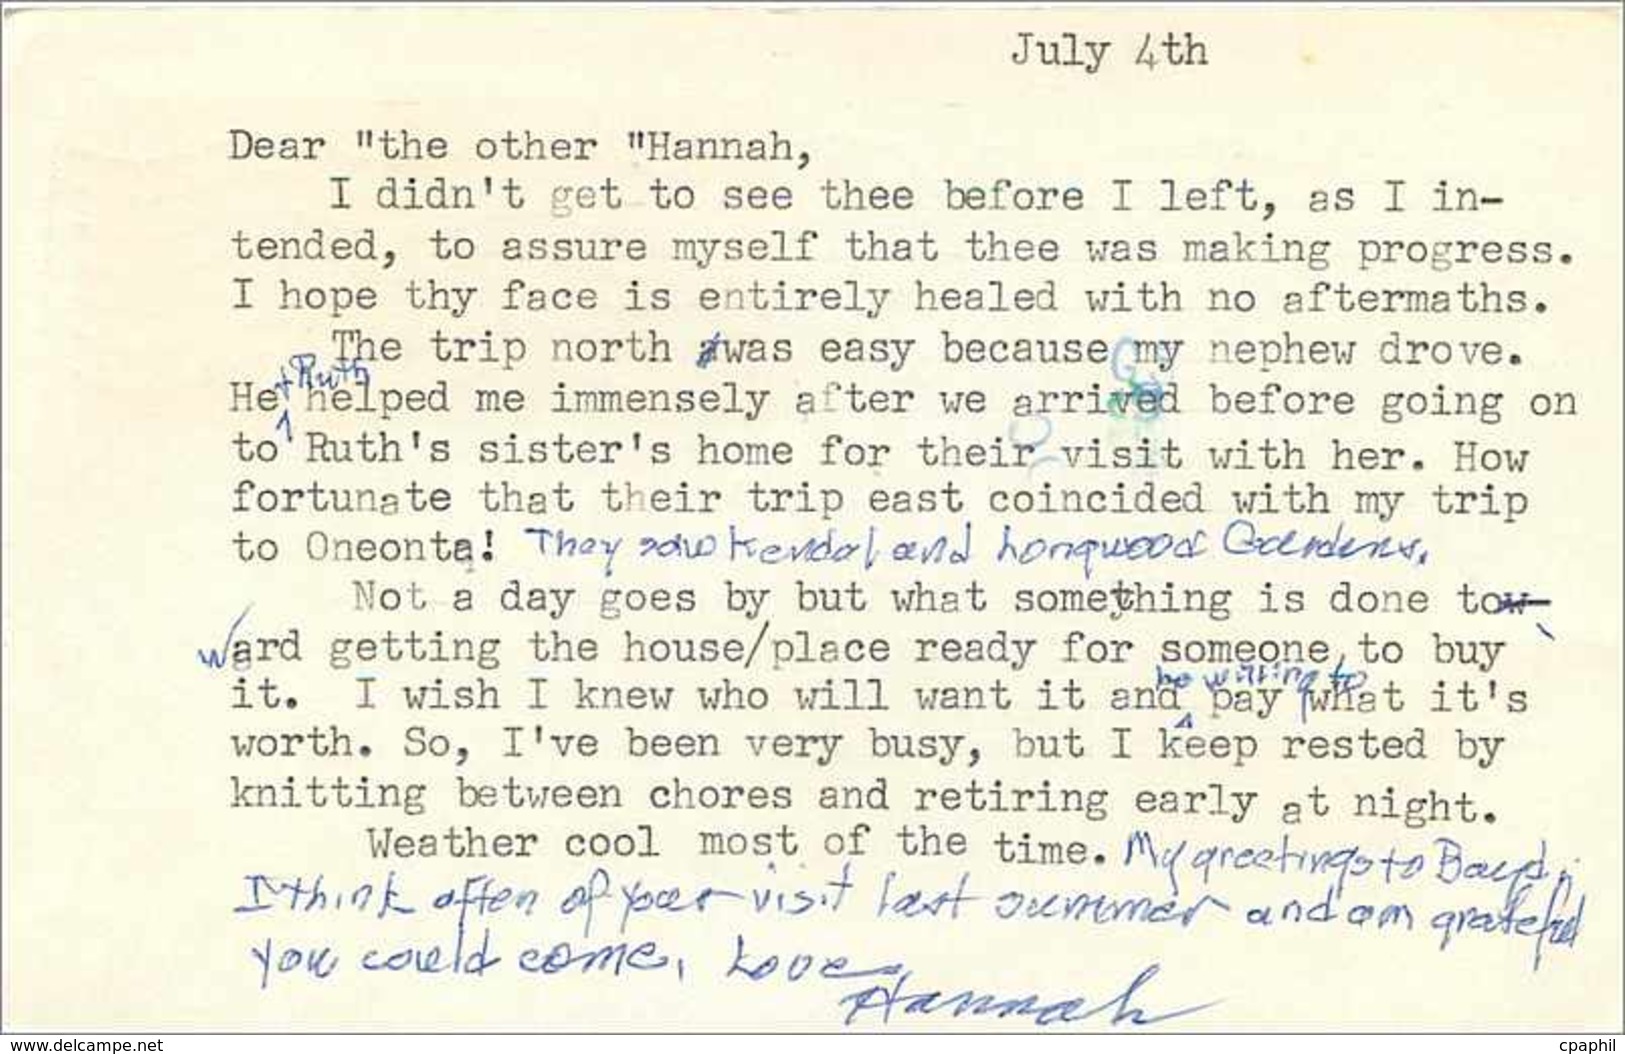 July 4th
Dear "the other "Hannah,
I didn't get to see thee before I left, as I in-
tended, to assure myself that thee was making progress.
I hope thy face is entirely healed with no aftermaths.
The trip north was easy because my nephew drove.
+ Ruth
He helped me immensely after we arrived before going on
to Ruth's sister's home for their visit with her. How
fortunate that their trip east coincided with my trip
to Oneonta! They saw Kendal and Longwood Gardens.
Not a day goes by but what something is done to
ward getting the house/place ready for someone to buy
be willing to
it. I wish I knew who will want it and pay what it's
worth. So, I've been very busy, but I keep rested by
knitting between chores and retiring early at night.
Weather cool most of the time. My greetings to Boyd;
I think often of your visit last summer and am grateful
you could come. Love,
Hannah
www.delcampe.net
cpaphil